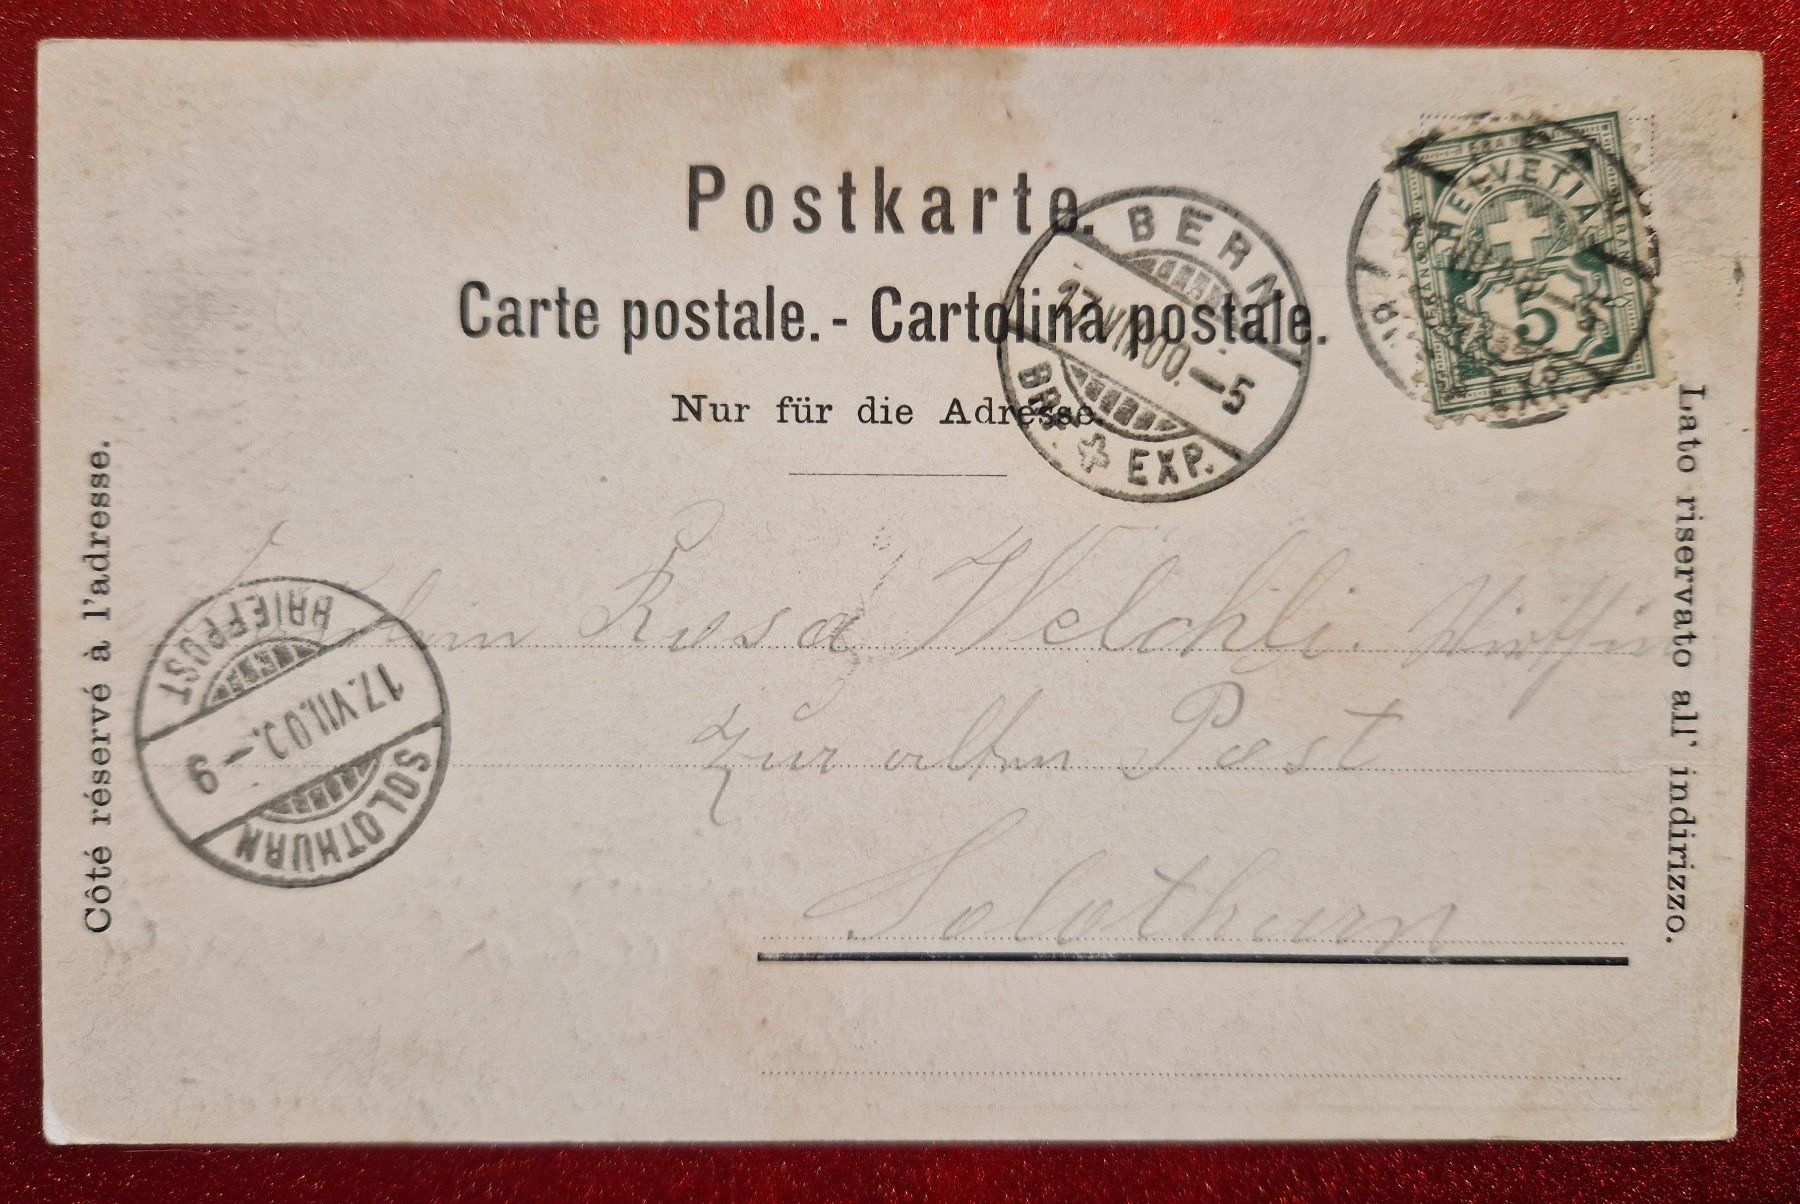 Postkarte.
Carte postale. - Cartolina postale.
Nur für die Adresse.
Côté réservé à l'adresse.
Lato riservato all' indirizzo.
FRANCO
HELVETIA
FRANCO
FRANCO
5
BERN
17.VII.00.-5
BRF. EXP.
BRIEFPOST
17.VII.00.-9
SOLOTHURN
Rosa Welchli. Wirthin
Zur alten Post
Solothurn